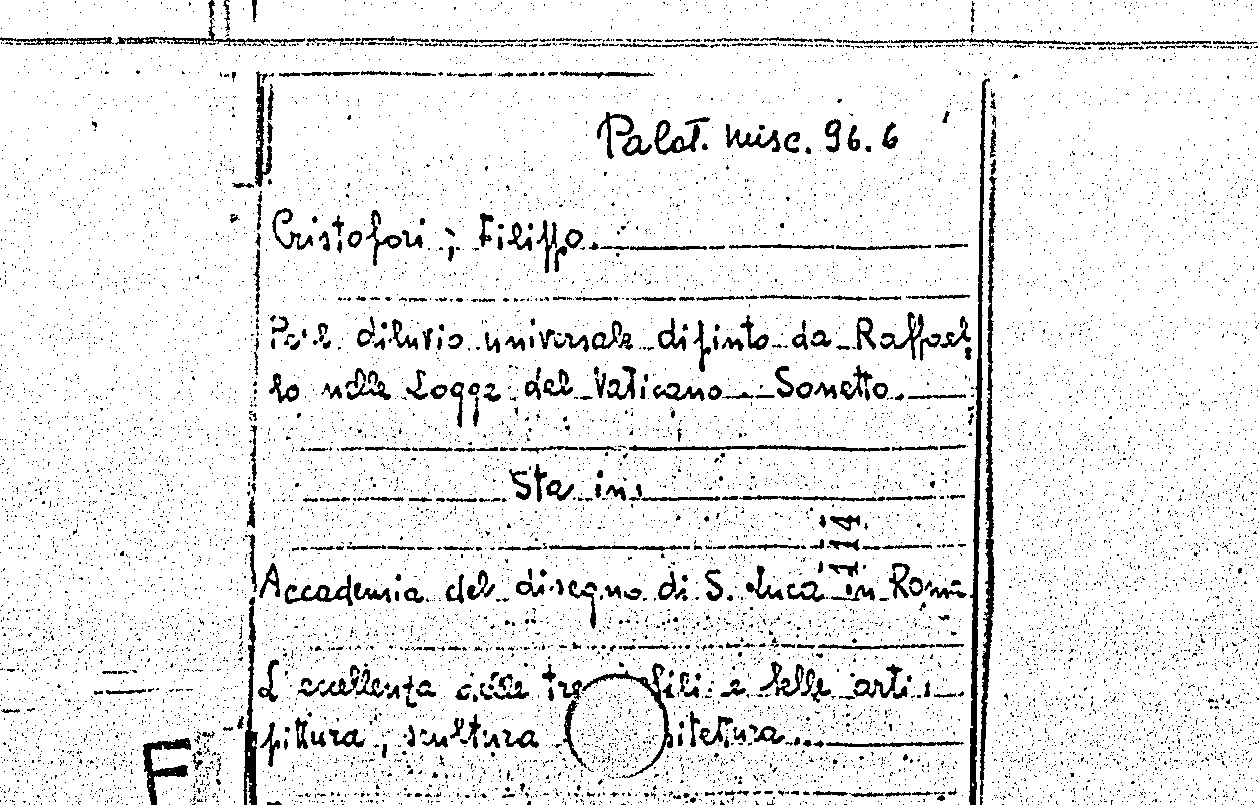 Palat. misc. 96.6
Cristofori, Filippo.
Pe'l diluvio universale dipinto da Raffael-
lo nelle Logge del Vaticano Sonetto.
Sta in:
114
Accademia del disegno di S. Luca in Roma
L'eccellenza delle tre e belle arti:
pittura, scultura